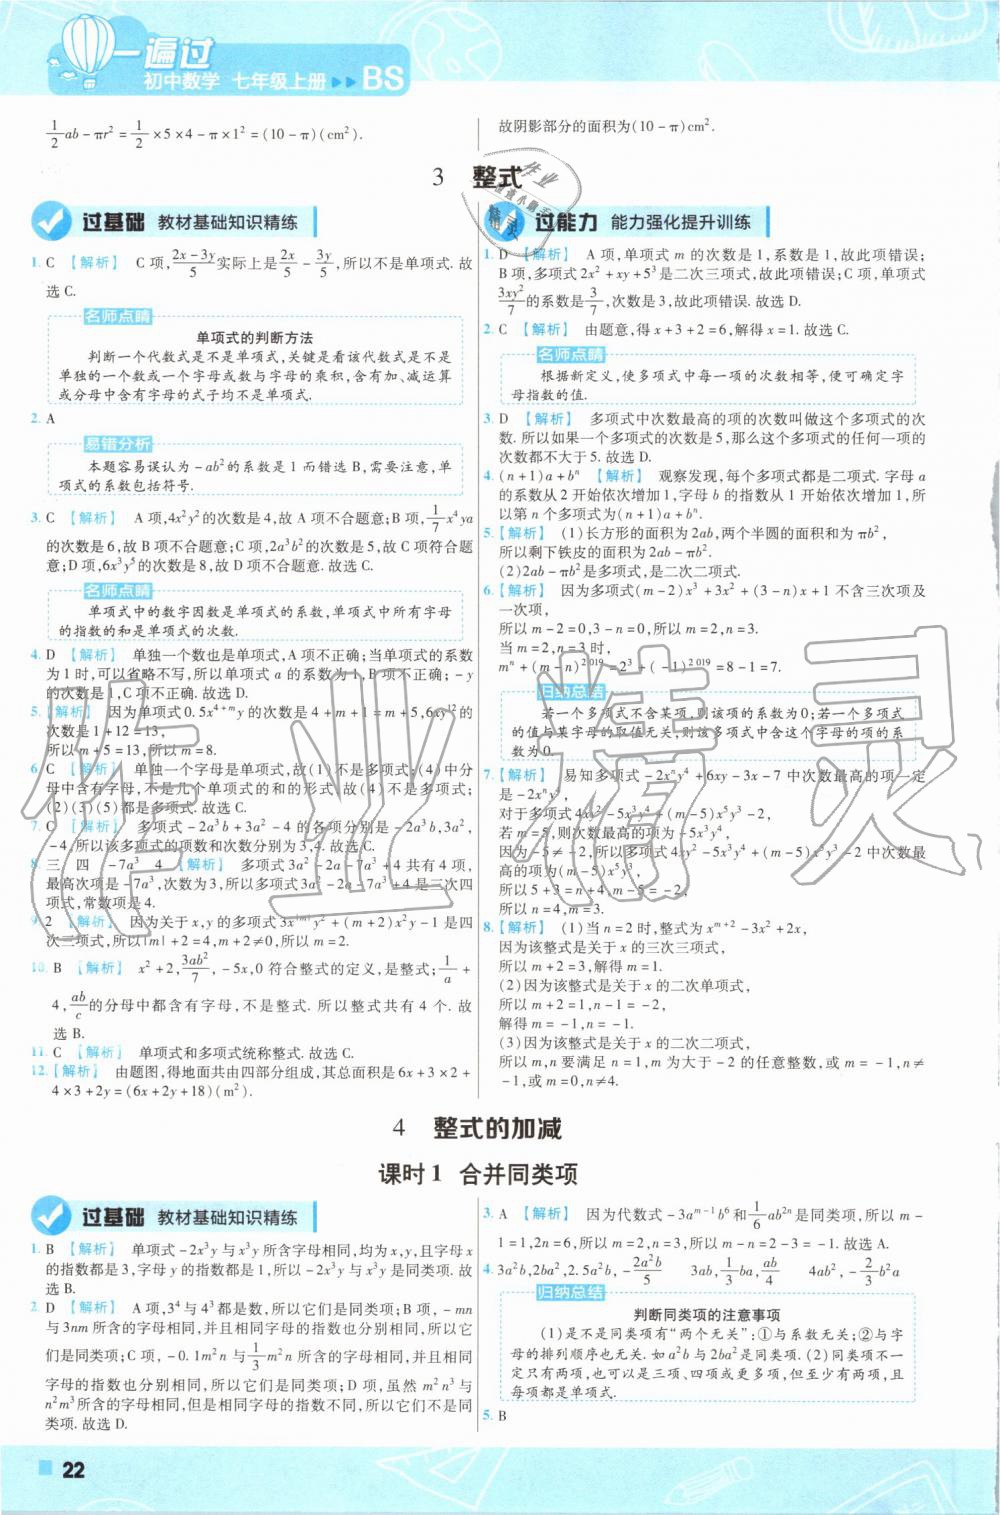 一遍过
初中数学 七年级上册 ▶▶ BS
1/2 ab－πr²＝1/2×5×4－π×1²＝(10－π)(cm²).
故阴影部分的面积为(10－π)cm².
3 整式
过基础 教材基础知识精练
1. C 【解析】 C项,(2x－3y)/5实际上是2x/5－3y/5,所以不是单项式.故
选C.
名师点睛
单项式的判断方法
判断一个代数式是不是单项式,关键是看该代数式是不是
单独的一个数或一个字母或数与字母的乘积,含有加、减运算
或分母中含有字母的式子均不是单项式.
2. A
易错分析
本题容易误认为－ab²的系数是1而错选B,需要注意,单
项式的系数包括符号.
3. C 【解析】 A项,4x²y²的次数是4,故A项不合题意;B项,1/7 x⁴ya
的次数是6,故B项不合题意;C项,2a³b²的次数是5,故C项符合题
意;D项,6x³y⁵的次数是8,故D项不合题意.故选C.
名师点睛
单项式中的数字因数是单项式的系数,单项式中所有字母
的指数的和是单项式的次数.
4. D 【解析】 单独一个数也是单项式,A项不正确;当单项式的系数
为1时,可以省略不写,所以单项式a的系数为1,B项不正确;－y
的次数是1,C项不正确.故选D.
5.【解析】 因为单项式0.5x⁴⁺ᵐy的次数是4＋m＋1＝m＋5,6xy¹²的
次数是1＋12＝13,
所以m＋5＝13,所以m＝8.
6. C 【解析】 单独一个字母是单项式,故(1)不是多项式;(4)中分
母中含有字母,不是几个单项式的和的形式,故(4)不是多项式;
(2)(3)(5)都是多项式.故选C.
7. C 【解析】 多项式－2a³b＋3a²－4的各项分别是－2a³b,3a²,
－4,所以该多项式的项数和次数分别为3,4.故选C.
8. 三 四 －7a³ 4 【解析】 多项式3a²－2a－7a³＋4共有4项,
最高次项是－7a³,次数为3,所以多项式3a²－2a－7a³＋4是三次四
项式,常数项是4.
9. 2 【解析】 因为关于x,y的多项式3x^|m|y²＋(m＋2)x²y－1是四
次三项式,所以|m|＋2＝4,m＋2≠0,所以m＝2.
10. B 【解析】 x²＋2,3ab²/7,－5x,0符合整式的定义,是整式;1/a＋
4,ab/c的分母中都含有字母,不是整式.所以整式共有4个.故
选B.
11. C 【解析】 单项式和多项式统称整式.故选C.
12.【解析】 由题图,得地面共由四部分组成,其总面积是6x＋3×2＋
4×3＋2y＝(6x＋2y＋18)(m²).
过能力 能力强化提升训练
1. D 【解析】 A项,单项式m的次数是1,系数是1,故此项错误;
B项,多项式2x²＋xy＋5³是二次三项式,故此项错误;C项,单项式
3xy²/7的系数是3/7,次数是3,故此项错误.故选D.
2. C 【解析】 由题意,得x＋3＋2＝6,解得x＝1.故选C.
名师点睛
根据新定义,使多项式中每一项的次数相等,便可确定字
母指数的值.
3. D 【解析】 多项式中次数最高的项的次数叫做这个多项式的次
数.所以如果一个多项式的次数是5,那么这个多项式的任何一项的
次数都不大于5.故选D.
4. (n＋1)a＋bⁿ 【解析】 观察发现,每个多项式都是二项式.字母a
的系数从2开始依次增加1,字母b的指数从1开始依次增加1,所
以第n个多项式为(n＋1)a＋bⁿ.
5.【解析】 (1)长方形的面积为2ab,两个半圆的面积和为πb²,
所以剩下铁皮的面积为2ab－πb².
(2)2ab－πb²是多项式,是二次二项式.
6.【解析】 因为多项式(m－2)x³＋3x²＋(3－n)x＋1不含三次项及
一次项,
所以m－2＝0,3－n＝0,所以m＝2,n＝3.
当m＝2,n＝3时,
mⁿ＋(m－n)²⁰¹⁹＝2³＋(－1)²⁰¹⁹＝8－1＝7.
归纳总结
若一个多项式不含某项,则该项的系数为0;若一个多项式
的值与某字母的取值无关,则该多项式中含这个字母的项的系
数为0.
7.【解析】 易知多项式－2xⁿy⁴＋6xy－3x－7中次数最高的项一定
是－2xⁿy⁴,
对于多项式4xy²－5x³y⁴＋(m－5)x⁵y³－2,
若m＝5,则次数最高的项为－5x³y⁴,
因为－5≠－2,所以多项式4xy²－5x³y⁴＋(m－5)x⁵y³－2中次数最
高的项为(m－5)x⁵y³,
所以5＋3＝n＋4,m－5＝－2,
所以n＝4,m＝3.
8.【解析】 (1)当n＝2时,整式为xᵐ⁺²－3x²＋2x,
因为该整式是关于x的三次三项式,
所以m＋2＝3,解得m＝1.
(2)因为该整式是关于x的二次单项式,
所以m＋2＝1,n－1＝－2,
解得m＝－1,n＝－1.
(3)因为该整式是关于x的二次二项式,
所以m,n要满足n＝1,m为大于－2的任意整数,或m＝－1,n≠
－1,或m＝0,n≠4.
4 整式的加减
课时1 合并同类项
过基础 教材基础知识精练
1. B 【解析】 单项式－2x³y与x³y所含字母相同,均为x,y,且字母x
的指数都是3,字母y的指数都是1,所以－2x³y与x³y是同类项.故
选B.
2. D 【解析】 A项,3⁴与4³都是数,所以它们是同类项;B项,－mn
与3nm所含字母相同,并且相同字母的指数也分别相同,所以它
们是同类项;C项,－0.1m²n与1/3 m²n所含的字母相同,并且相同
字母的指数也分别相同,所以它们是同类项;D项,虽然m²n³与
n²m³所含字母相同,但是相同字母的指数不同,所以它们不是同
类项.故选D.
3. A 【解析】 因为代数式－3aᵐ⁻¹b⁶和1/6 ab²ⁿ是同类项,所以m－
1＝1,2n＝6,所以m＝2,n＝3,所以m－n＝2－3＝－1.故选A.
4. 3a²b,2ba²,2.5a²b,－2a²b/5 3ab,1/3 ba,ab/4 4ab²,－2/3 b²a
归纳总结
判断同类项的注意事项
(1)是不是同类项有“两个无关”:①与系数无关;②与字
母的排列顺序也无关.如a²b与2ba²是同类项.(2)同类项不一
定只有两项,也可以是三项、四项或更多项,但至少有两项,且
每项都是单项式.
5. B
22
作业精灵